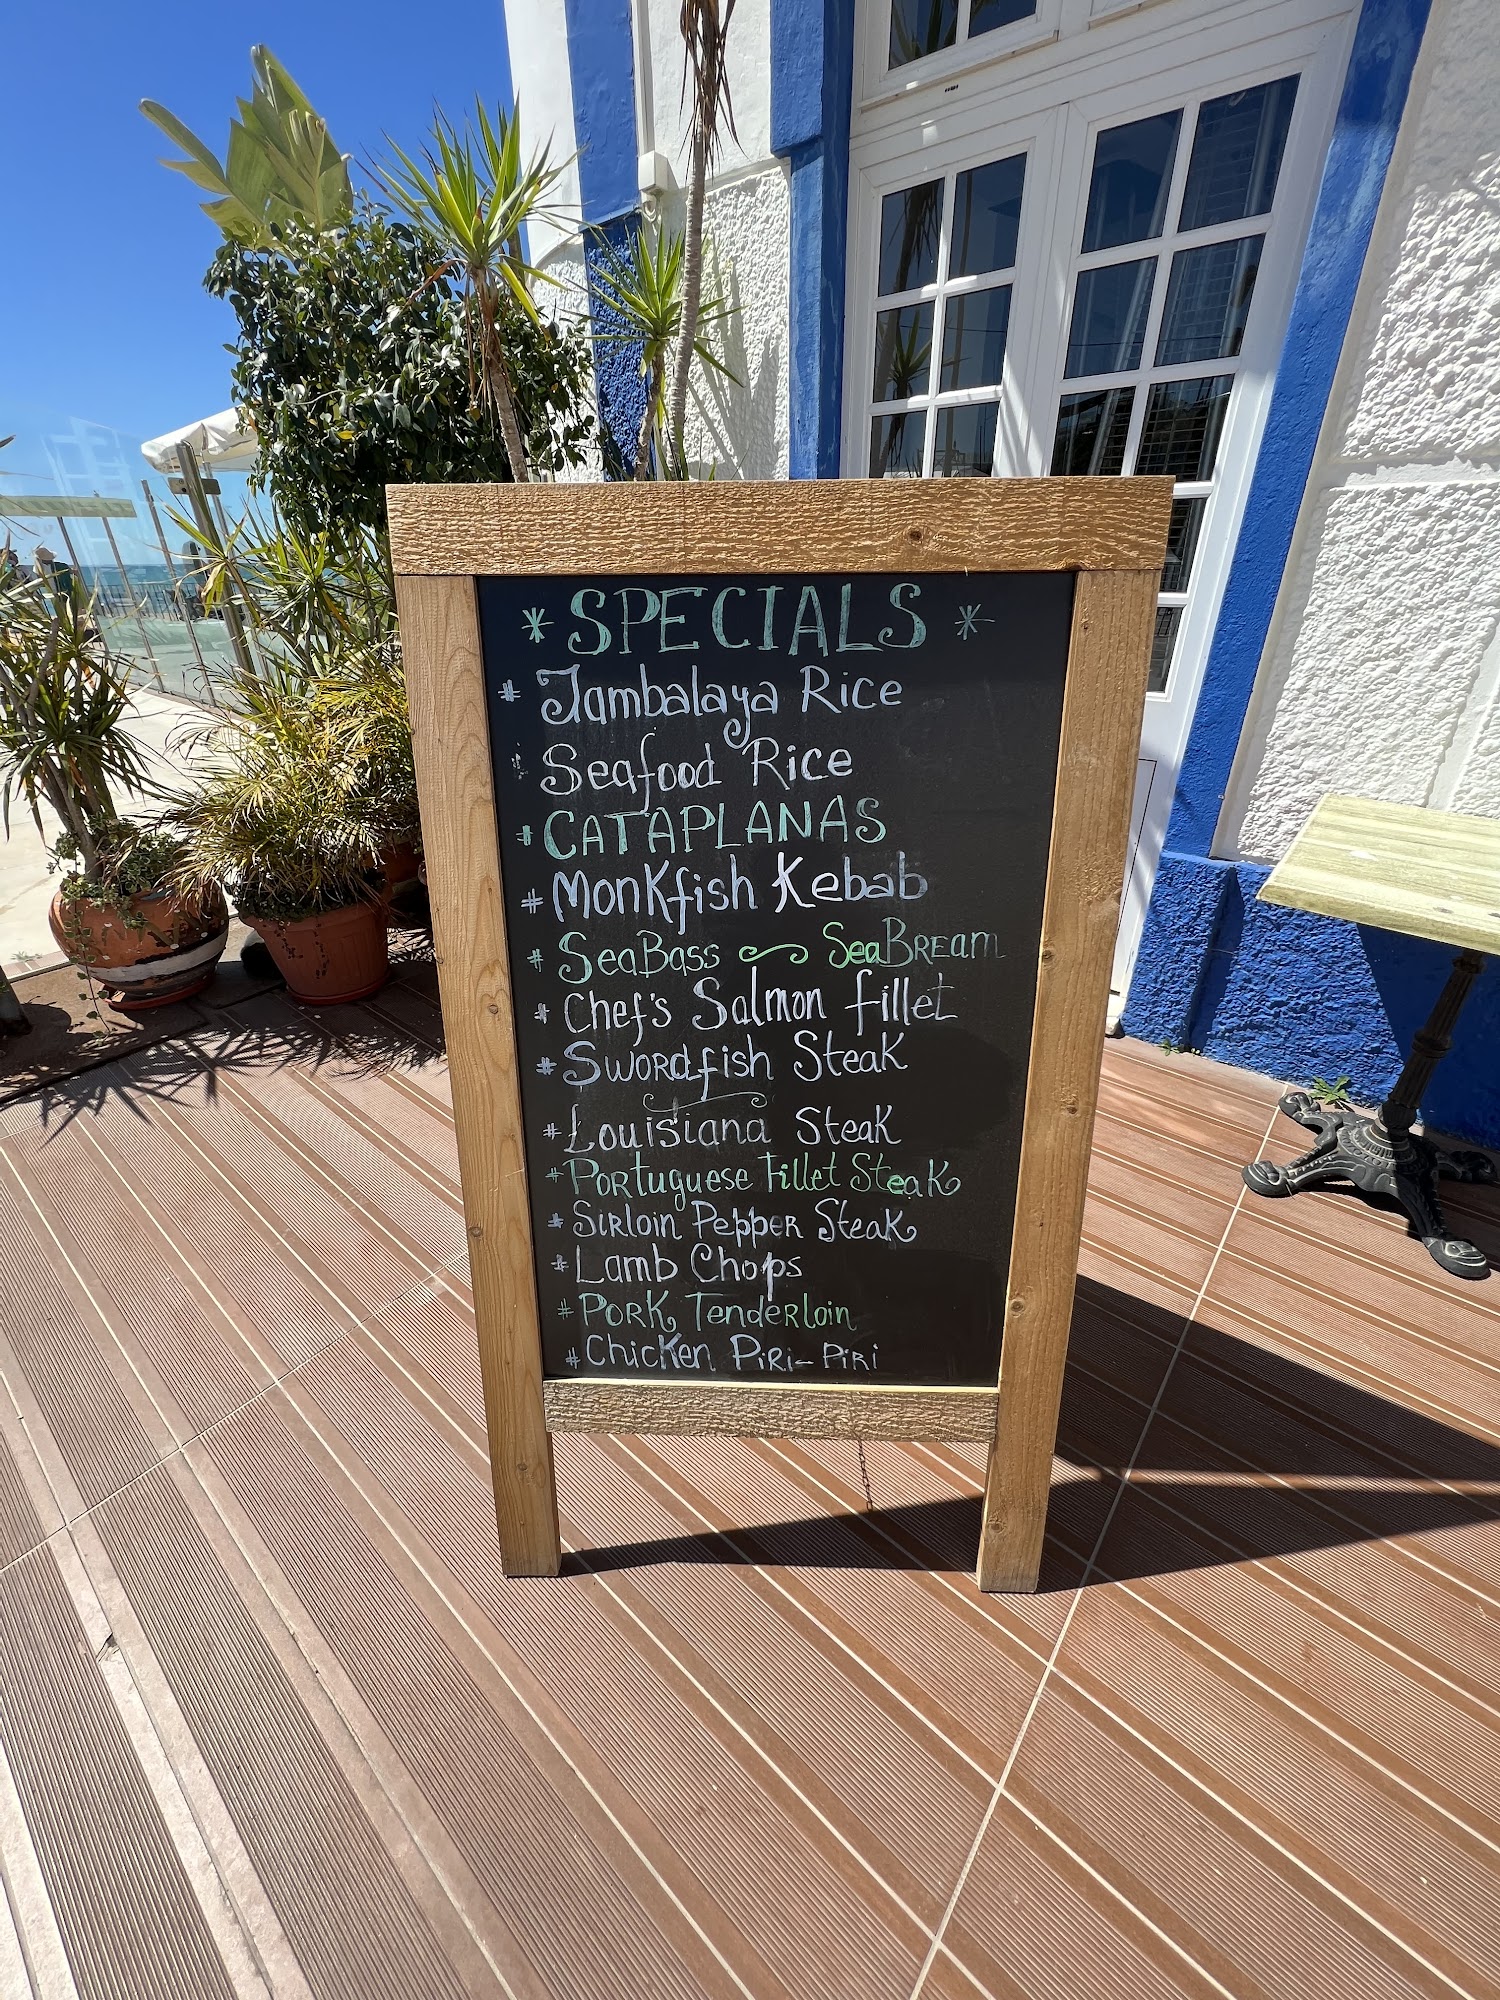 * SPECIALS *
# Jambalaya Rice
Seafood Rice
# CATAPLANAS
# Monkfish Kebab
# SeaBass ~ SeaBream
# Chef's Salmon fillet
# Swordfish Steak
# Louisiana Steak
# Portuguese Fillet Steak
# Sirloin Pepper Steak
# Lamb Chops
# Pork Tenderloin
# Chicken Piri-Piri